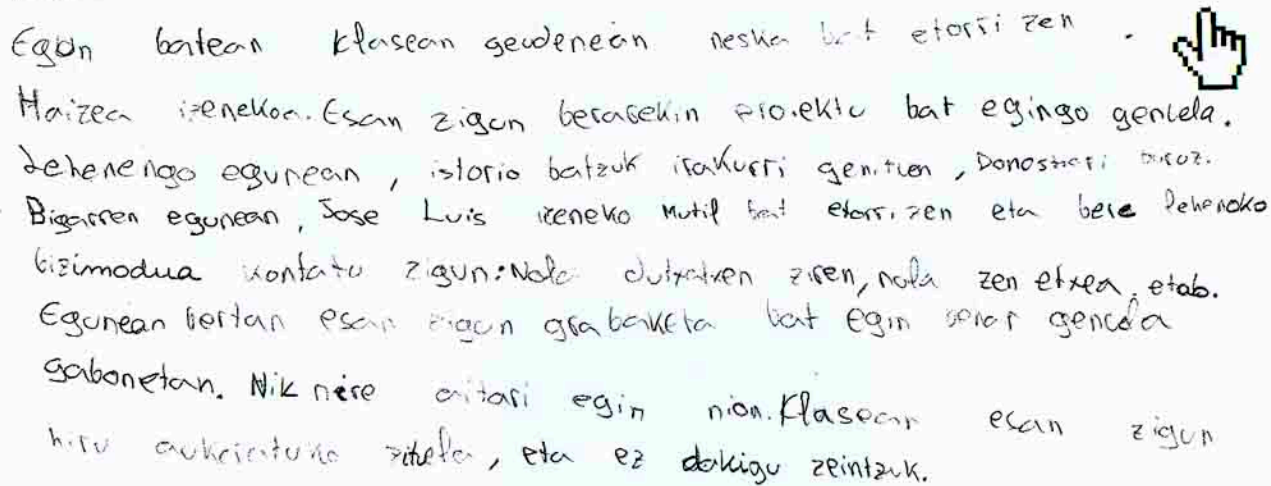 Egun batean klasean geudenean neska bat etorri zen .
Haizea izenekoa. Esan zigun berarekin proiektu bat egingo genuela.
Lehenengo egunean, istorio batzuk irakurri genituen, Donostiari buruz.
Bigarren egunean, Jose Luis izeneko mutil bat etorri zen eta bere lehenoko
bizimodua kontatu zigun: Nola dutxatzen ziren, nola zen etxea, etab.
Egunean bertan esan zigun grabaketa bat egin behar genuela
gabonetan. Nik nire aitari egin nion. Klasean esan zigun
hiru aukeratuko zituela, eta ez dakigu zeintzuk.